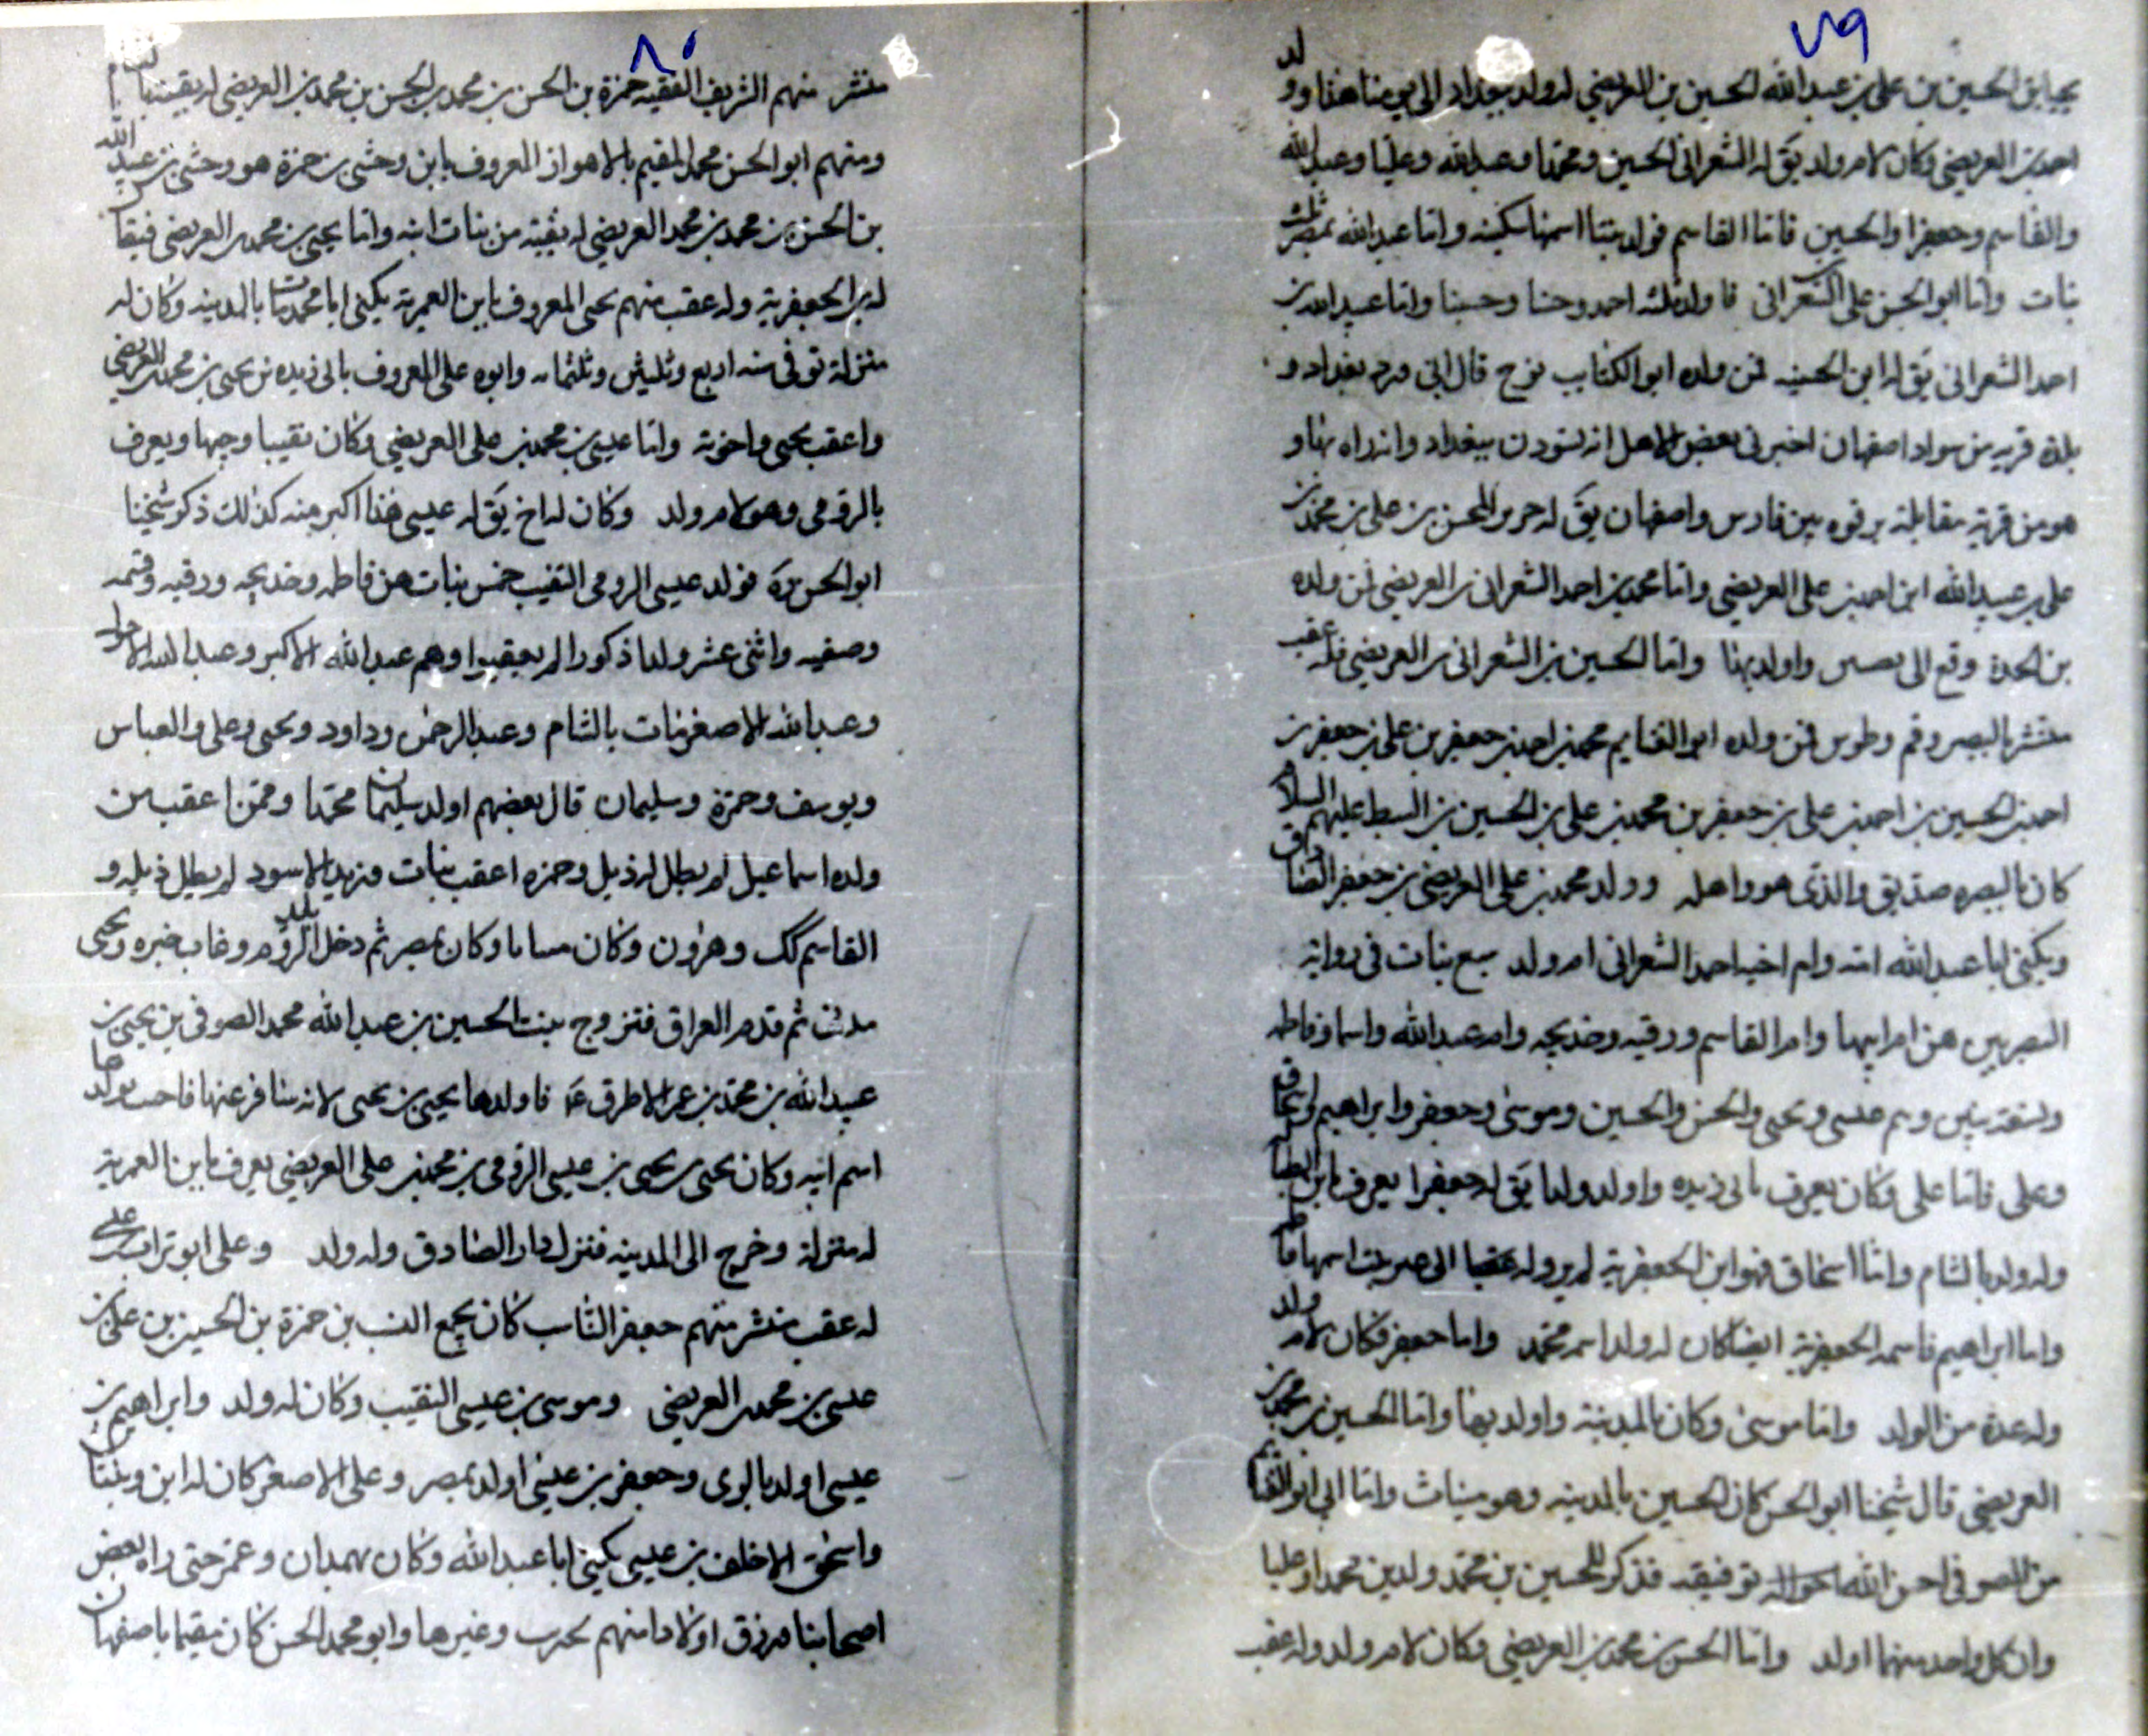 ٧٩
يحيا بن الحسين بن علي بن عبدالله الحسين بن العريضي له ولد ببغداد الى يومنا هذا وولد
احمد بن العريضي وكان لام ولد يق له الشعراني الحسين ومحمدا وعبدالله وعليا وعبيدالله
والقاسم وجعفرا والحسين فاما القاسم فولد بنتا اسمها سكينه واما عبدالله بمصر ثلث
بنات واما ابو الحسن علي الشعراني فاولد ثلثه احمد وحسنا وحسينا واما عبيدالله بن
احمد الشعراني يق له ابن الحسنيه فمن ولده ابو الكتايب نوح قال ابي ورد بغداد و
بلده قريه من سواد اصفهان اخبرني بعض الاهل انه بغداد وانه راه بها و
هو من قرية مقابلة برقوه بين فارس واصفهان يق له الحسن بن علي بن محمد بن
علي بن عبيدالله ابن احمد بن علي العريضي واما محمد بن احمد الشعراني بن العريضي فمن ولده
بن الجدة وقع الى واولد بها واما الحسين بن الشعراني بن العريضي فله عقب
منتشر بالبصره وقم وطوس فمن ولده ابو القاسم محمد بن احمد بن جعفر بن علي بن جعفر بن
احمد بن الحسين بن احمد بن علي بن جعفر بن محمد بن علي بن الحسين بن السبط عليهم السلام
كان بالبصره صديق والدى هو واهله وولد محمد بن علي العريضي بن جعفر الصادق
ويكنى ابا عبدالله امه وام اخيه احمد الشعراني ام ولد سبع بنات في رواية
البصريين هن ام ابيها وام القاسم ورقيه وخديجه وام عبدالله واسما وفاطمه
وتسعة بنين وهم عيسى ويحيى والحسن والحسين وموسى وجعفر وابراهيم واسحاق
وعلي فاما علي وكان يعرف بابى زيده واولد ولدا يق له جعفرا يعرف بابن
وله ولد بالشام واما اسحاق فهو ابن الجعفرية لم ير وله عقبا الى بنت اسمها فاطمه
واما ابراهيم فامه الجعفرية ايضا كان له ولد اسمه محمد واما جعفر فكان لام ولد
وله عدة من الولد واما موسى وكان بالمدينة واولد بها واما الحسين بن محمد بن
العريضي قال شيخنا ابو الحسن كان الحسين بالمدينه وهو ميناث واما ابي ابو الغنائم
من الصوفي احسن الله احواله توفيقه فذكر للحسين بن محمد ولدين محمدا وعليا
وان كل واحد منهما اولد واما الحسن بن محمد بن العريضي وكان لام ولد وله عقب
٨٠
منتشر منهم الشريف الفقيه حمزة بن الحسن بن محمد بن الحسن بن محمد بن العريضي له بقية بالشام
ومنهم ابو الحسن محمد المقيم بالاهواز المعروف بابن وحشى بن حمزة هو وحشى بن عبيد الله
بن الحسن بن محمد بن محمد العريضي له بقية من بنات ابنه واما يحيى بن محمد بن العريضي فيقا
له بن الجعفرية وله عقب منهم يحيى المعروف بابن العمرية يكنى ابا محمد مات بالمدينه وكان له
منزلة توفى سنه اربع وثلثين وثلثمائه وابوه علي المعروف بابى زيده بن يحيى بن محمد العريضي
واعقب يحيى واخوته واما عيسى بن محمد بن علي العريضي وكان نقيبا وجيها ويعرف
بالرومى وهو لام ولد وكان له اخ يق له عيسى هذا اكبر منه كذلك ذكر شيخنا
ابو الحسن ره فولد عيسى الرومى النقيب خمس بنات هن فاطمه وخديجه ورقيه وقسمه
وصفيه واثنى عشر ولدا ذكورا لم يعقبوا وهم عبدالله الاكبر وعبدالله الاحول
وعبدالله الاصغر مات بالشام وعبدالرحمن وداود ويحيى وعلى والعباس
ويوسف وحمزة وسليمان قال بعضهم اولد سليمان محمدا وممن اعقب من
ولده اسماعيل لم يطل له ذيل وحمزه اعقب بنات وزيد الاسود لم يطل ذيله و
القاسم كك وهرون وكان وكان بمصر ثم دخل بلد الروم وغاب خبره ويحيى
مدنى ثم قدم العراق فتزوج بنت الحسين بن عبدالله محمد الصوفى بن يحيى بن
عبدالله بن محمد بن عمر الاطرف ع فاولدها يحيى بن يحيى لانه سافر عنها فاحب ولدها
اسم ابيه وكان يحيى بن يحيى بن عيسى الرومى بن محمد بن علي العريضي يعرف بابن العمرية
له منزلة وخرج الى المدينه فنزل دار الصادق وله ولد وعلى ابو تراب علي
له عقب منتشر منهم جعفر النساب كان يجمع النسب بن حمزة بن الحسين بن علي بن
عيسى بن محمد بن العريضي وموسى بن عيسى النقيب وكان له ولد وابراهيم بن
عيسى اولد بالرى وجعفر بن عيسى اولد بمصر وعلى الاصغر كان له ابن وبنتان
واسحق الاخلف بن عيسى يكنى ابا عبدالله وكان بهمدان وعمر حتى راه بعض
اصحابنا ورزق اولادا منهم وغيرها وابو محمد الحسن كان مقيما باصفهان